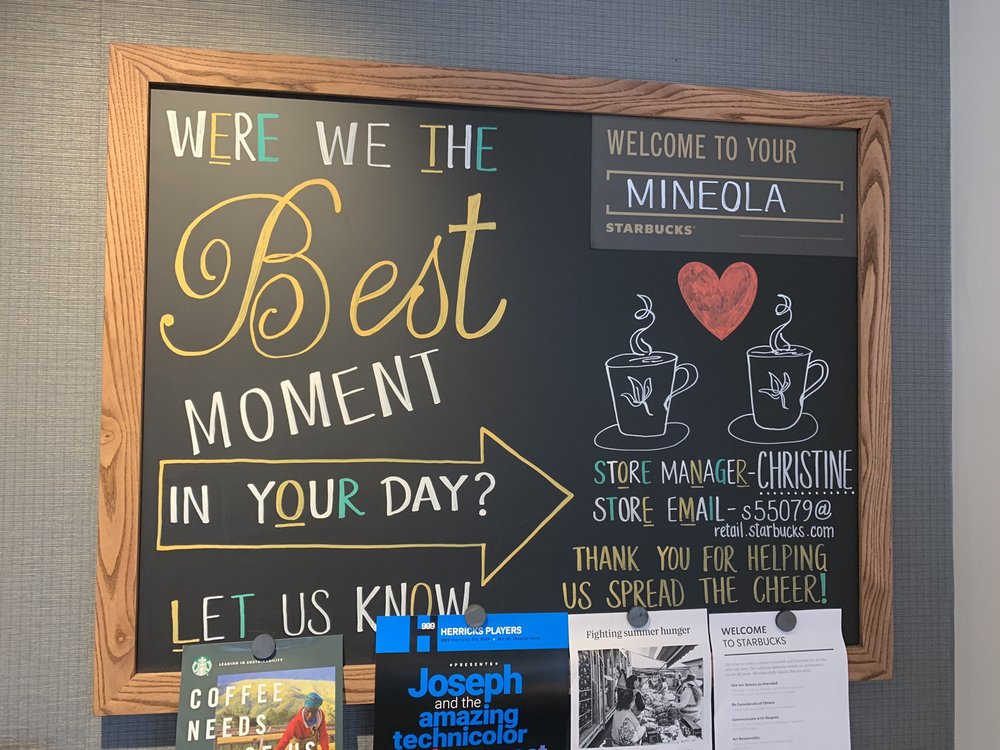 WERE WE THE
Best
MOMENT
IN YOUR DAY?
LET US KNOW
WELCOME TO YOUR
MINEOLA
STARBUCKS
STORE MANAGER-CHRISTINE
STORE EMAIL-s55079@
retail.starbucks.com
THANK YOU FOR HELPING
US SPREAD THE CHEER!
LEADING IN SUSTAINABILITY
COFFEE
NEEDS
US
999
H
HERRICKS PLAYERS
PRESENTS
Joseph
and the
amazing
technicolor
Fighting summer hunger
WELCOME
TO STARBUCKS
Use our Spaces as Intended
Be Considerate of Others
Communicate with Respect
Act Responsibly